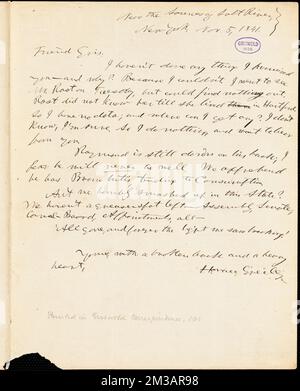 Near the Sources of Salt River,
New York, Nov. 5, 1841
GRISWOLD
Friend Gris.
I haven't done any thing I promised
you—and why? Because I couldn't. I went to see
Mr. Root on Tuesday, but could find nothing out.
Root did not know her till she lived in Hartford
So I have no data; and where can I get any? I don't
know, I'm sure. So I do nothing, and wait to hear
from you.
Raymond is still down on his back; I
fear he will never be well. We apprehend
he has Bronchitis, tending to Consumption.
Ain't we handsomely in this State?
We haven't a grease spot left. Assembly, Senate,
Canal Board, Appointments, all—
'All gone, and the light me
Yours, with a broken back and a heavy
heart,
Horace Greeley
Printed in Griswold Correspondence,
alamy
Image ID: 2M3AR98
www.alamy.com